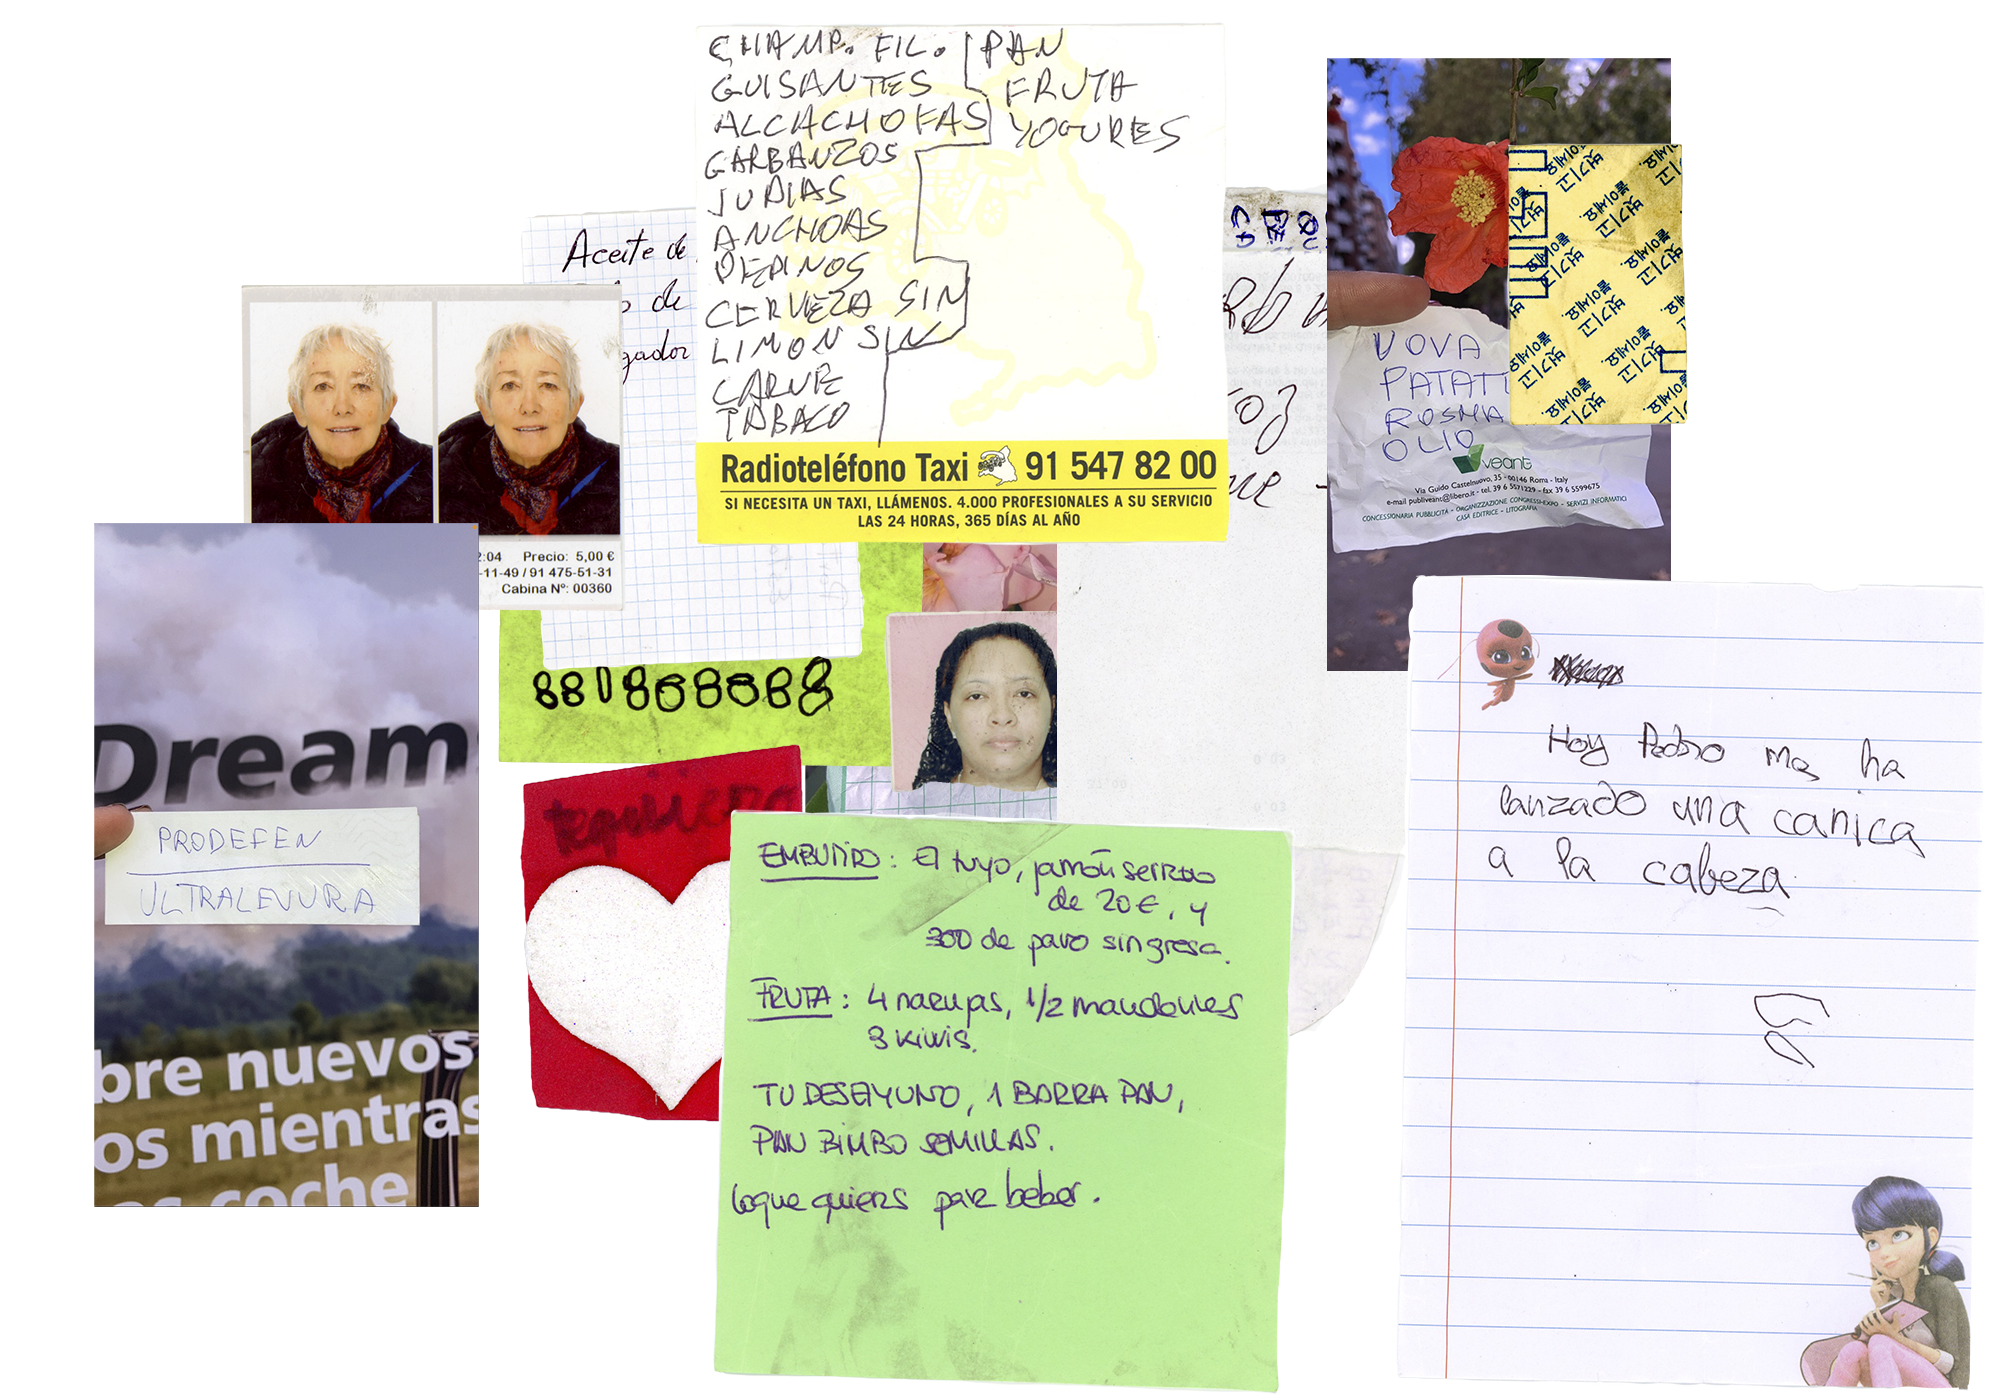 CHAMP. FIL.
GUISANTES
ALCACHOFAS
GARBANZOS
JUDIAS
ANCHOAS
PEPINOS
CERVEZA SIN
LIMON SIN
CARNE
TABACO
PAN
FRUTA
YOGURES
Radioteléfono Taxi 91 547 82 00
SI NECESITA UN TAXI, LLÁMENOS. 4.000 PROFESIONALES A SU SERVICIO
LAS 24 HORAS, 365 DÍAS AL AÑO
Aceite de
de
gador
2:04 Precio: 5,00 €
-11-49 / 91 475-51-31
Cabina Nº: 00360
Dreams
PRODEFEN
ULTRALEVURA
bre nuevos
os mientras
coche
881808088
tequiero
EMBUTIDO: El tuyo, jamón serrano
de 20€, y
300 de pavo sin grasa.
FRUTA: 4 naranjas, 1/2 mandarines
3 kiwis.
TU DESAYUNO, 1 BARRA PAN,
PAN BIMBO SEMILLAS.
loque quieras para beber.
UOVA
PATAT
ROSMA
OLIO
veant
Via Guido Castelnuovo, 35 - 00146 Roma - Italy
e-mail publiveant@libero.it - tel. 39 6 5571229 - fax 39 6 5599675
CONCESSIONARIA PUBBLICITÀ - ORGANIZZAZIONE CONGRESSI-EXPO - SERVIZI INFORMATICI
CASA EDITRICE - LITOGRAFIA
벗기고
붙이세요.
Hoy Pedro me ha
lanzado una canica
a la cabeza